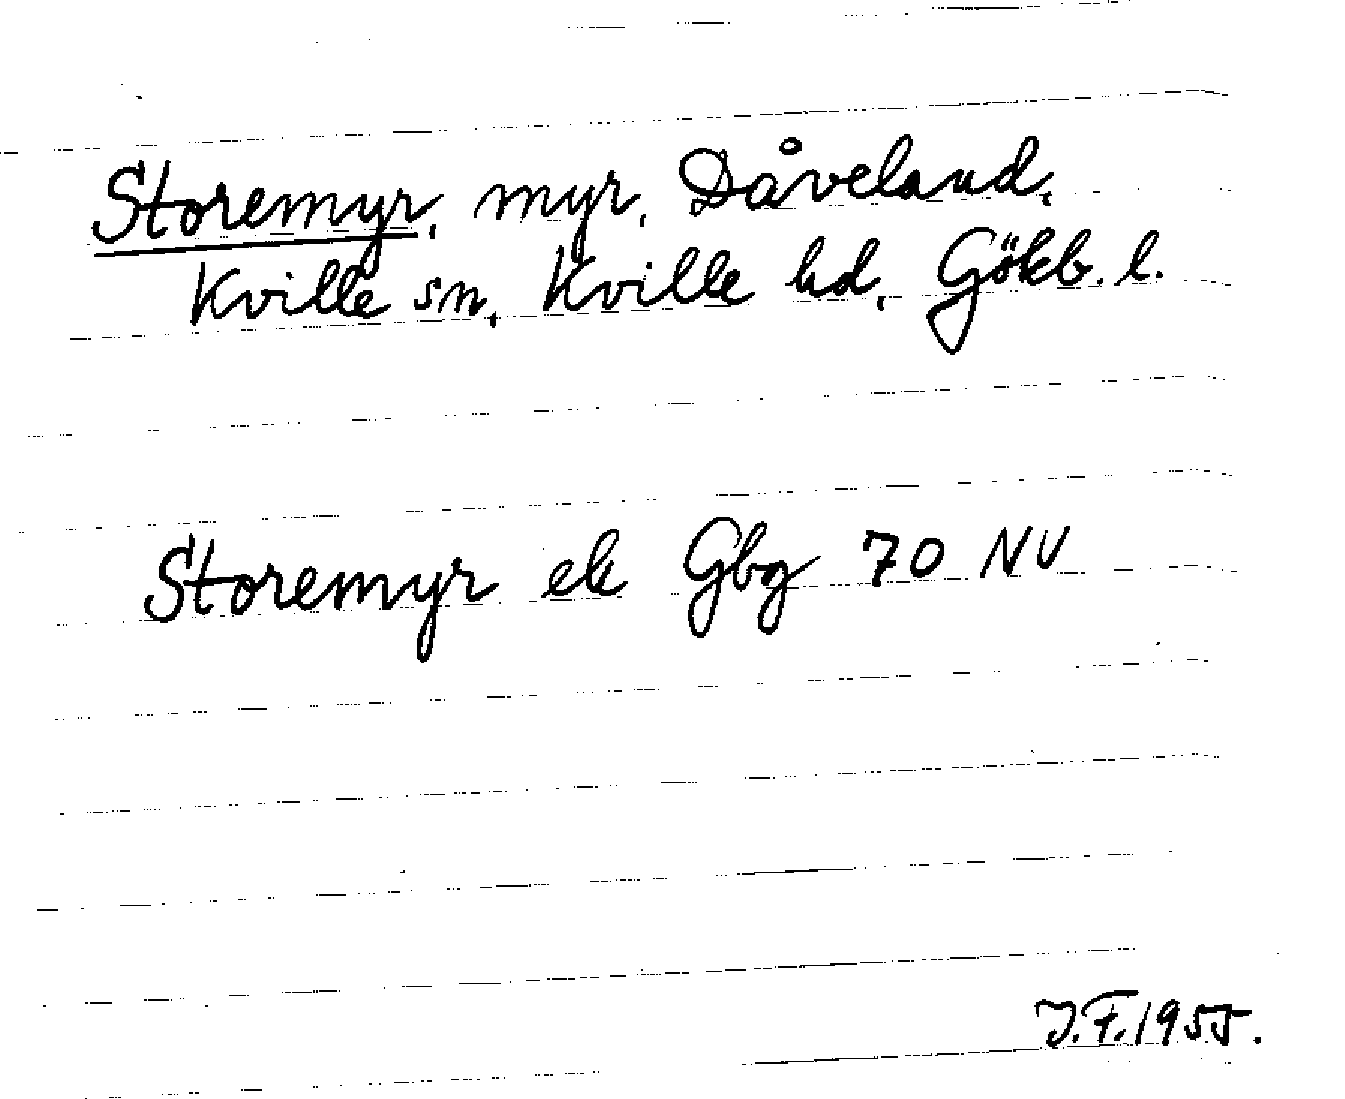 Storemyr, myr, Dåveland,
Kville sn, Kville hd, Gökb. l.
Storemyr ek Gbg 70 NV
J.F. 1955.